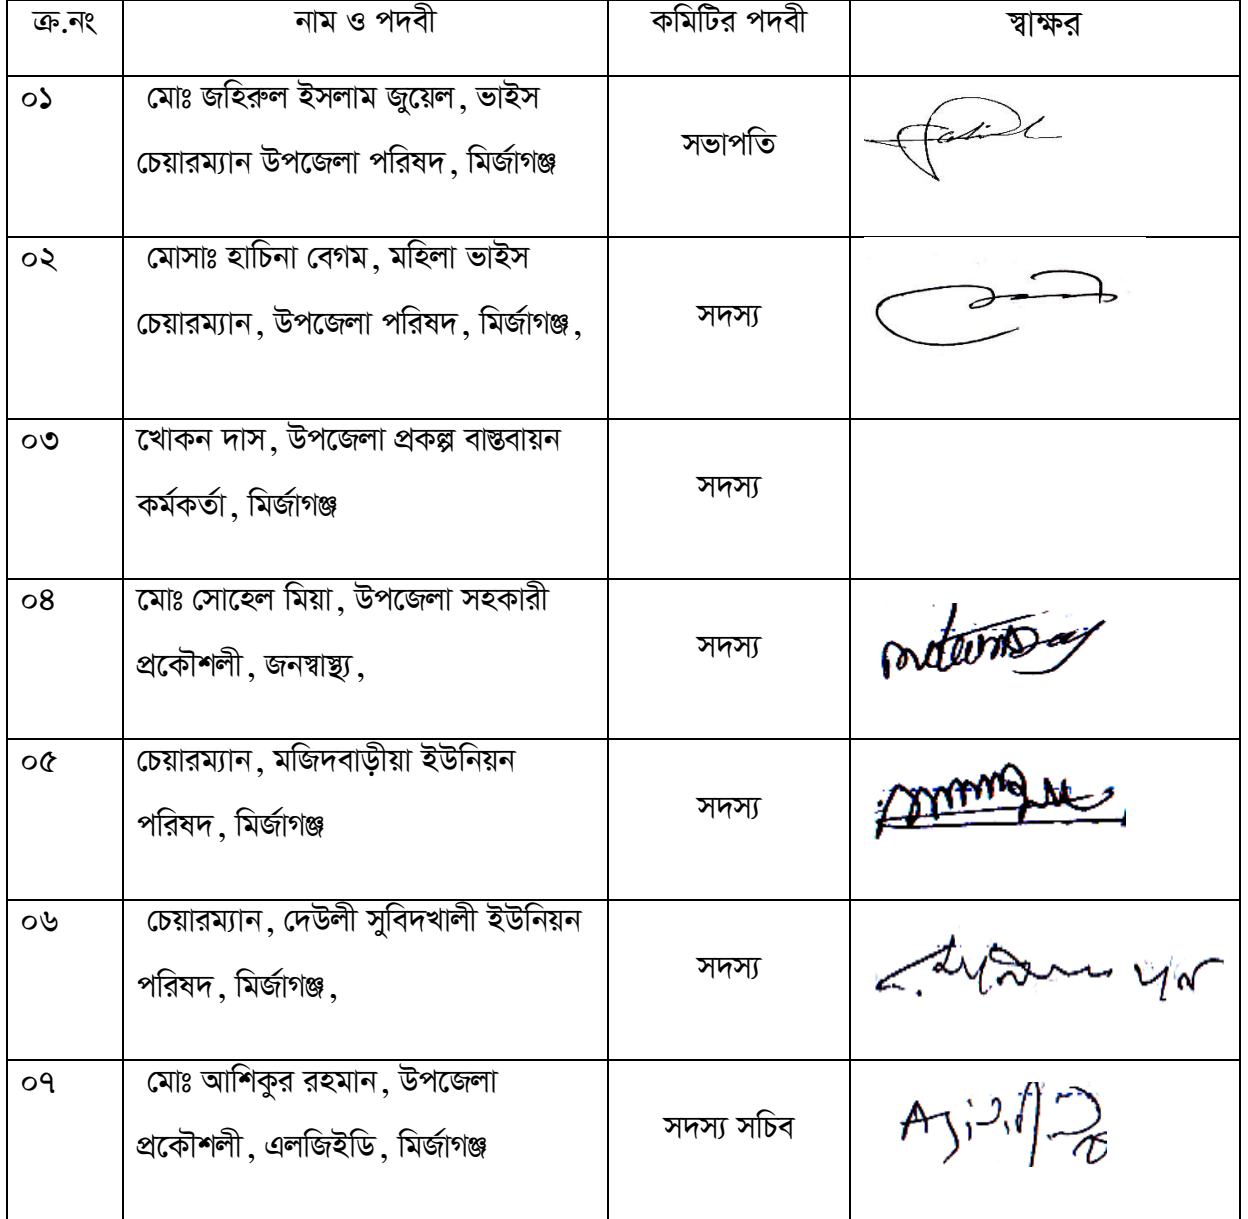 ক্র.নং নাম ও পদবী কমিটির পদবী স্বাক্ষর
০১ মোঃ জহিরুল ইসলাম জুয়েল, ভাইস
চেয়ারম্যান উপজেলা পরিষদ, মির্জাগঞ্জ
সভাপতি
০২ মোসাঃ হাচিনা বেগম, মহিলা ভাইস
চেয়ারম্যান, উপজেলা পরিষদ, মির্জাগঞ্জ,
সদস্য
০৩ খোকন দাস, উপজেলা প্রকল্প বাস্তবায়ন
কর্মকর্তা, মির্জাগঞ্জ
সদস্য
০৪ মোঃ সোহেল মিয়া, উপজেলা সহকারী
প্রকৌশলী, জনস্বাস্থ্য,
সদস্য
০৫ চেয়ারম্যান, মজিদবাড়ীয়া ইউনিয়ন
পরিষদ, মির্জাগঞ্জ
সদস্য
০৬ চেয়ারম্যান, দেউলী সুবিদখালী ইউনিয়ন
পরিষদ, মির্জাগঞ্জ,
সদস্য
০৭ মোঃ আশিকুর রহমান, উপজেলা
প্রকৌশলী, এলজিইডি, মির্জাগঞ্জ
সদস্য সচিব